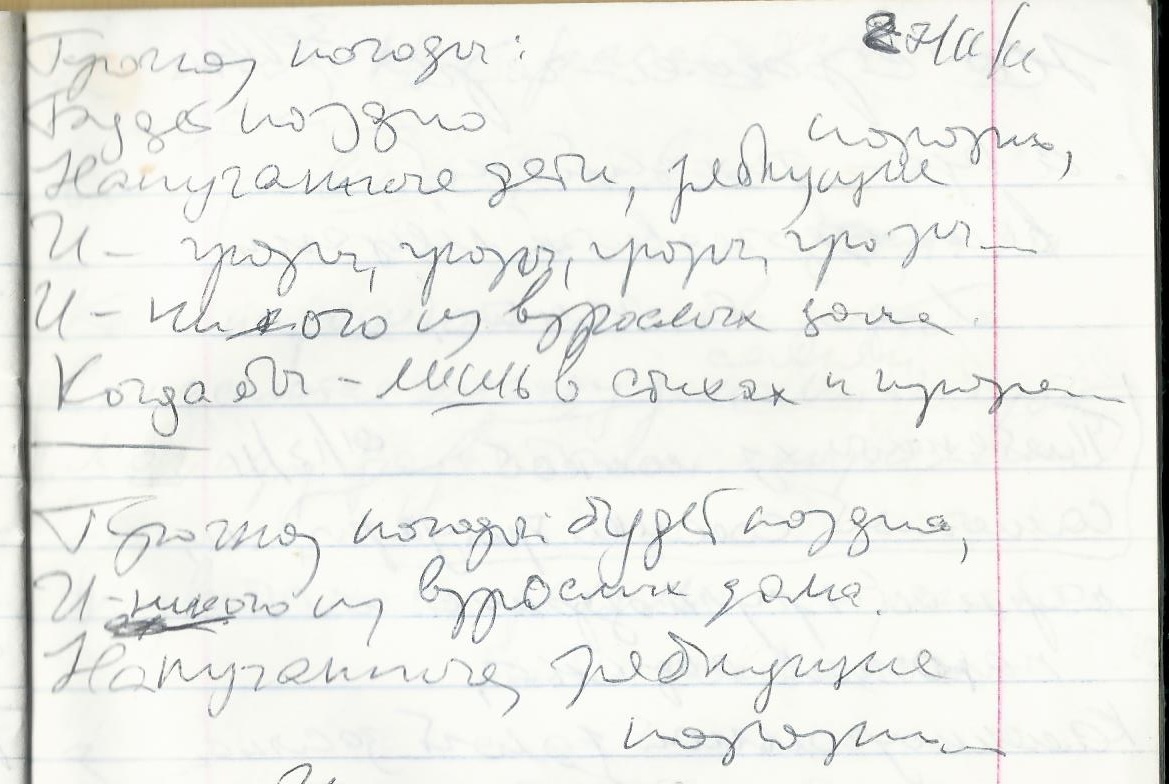 Прогноз погоды:
Будет поздно
порознь,
Напуганные дети, зябнущие
И – грозы, грозы, грозы, грозы...
И – никого из взрослых дома.
Когда бы – лишь в стихах и прозе...
Прогноз погоды: будет поздно,
И – никого из взрослых дома.
Напуганные, зябнущие
порознь...